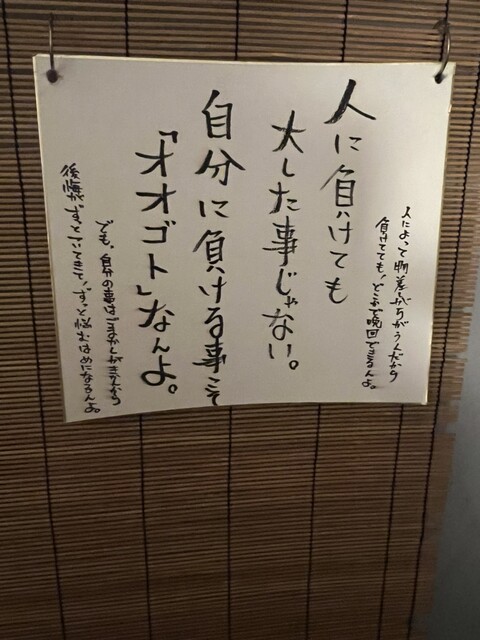 人に負けても
大した事じゃない。
人によって物差しがちがうんだから
負けてても、どこかで挽回できるんよ。
自分に負ける事こそ
「オオゴト」なんよ。
でも、自分の事はごまかしがきかんから
後悔がずっとついてきて、ずっと悩むはめになるんよ。